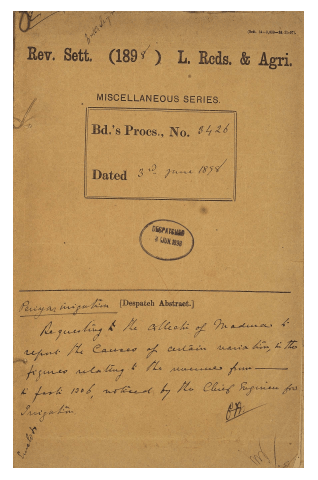 Rev. Sett. (1898) L. Rcds. & Agri.
MISCELLANEOUS SERIES.
Bd.'s Procs., No. 3426
Dated 3rd June 1898
DESPATCHED
Periyar irrigation [Despatch Abstract.]
Requesting the Collector of Madura to
report the causes of certain variation, in the
figures relating to the revenue from
to fasli 1306, noticed by the Chief Engineer for
Irrigation